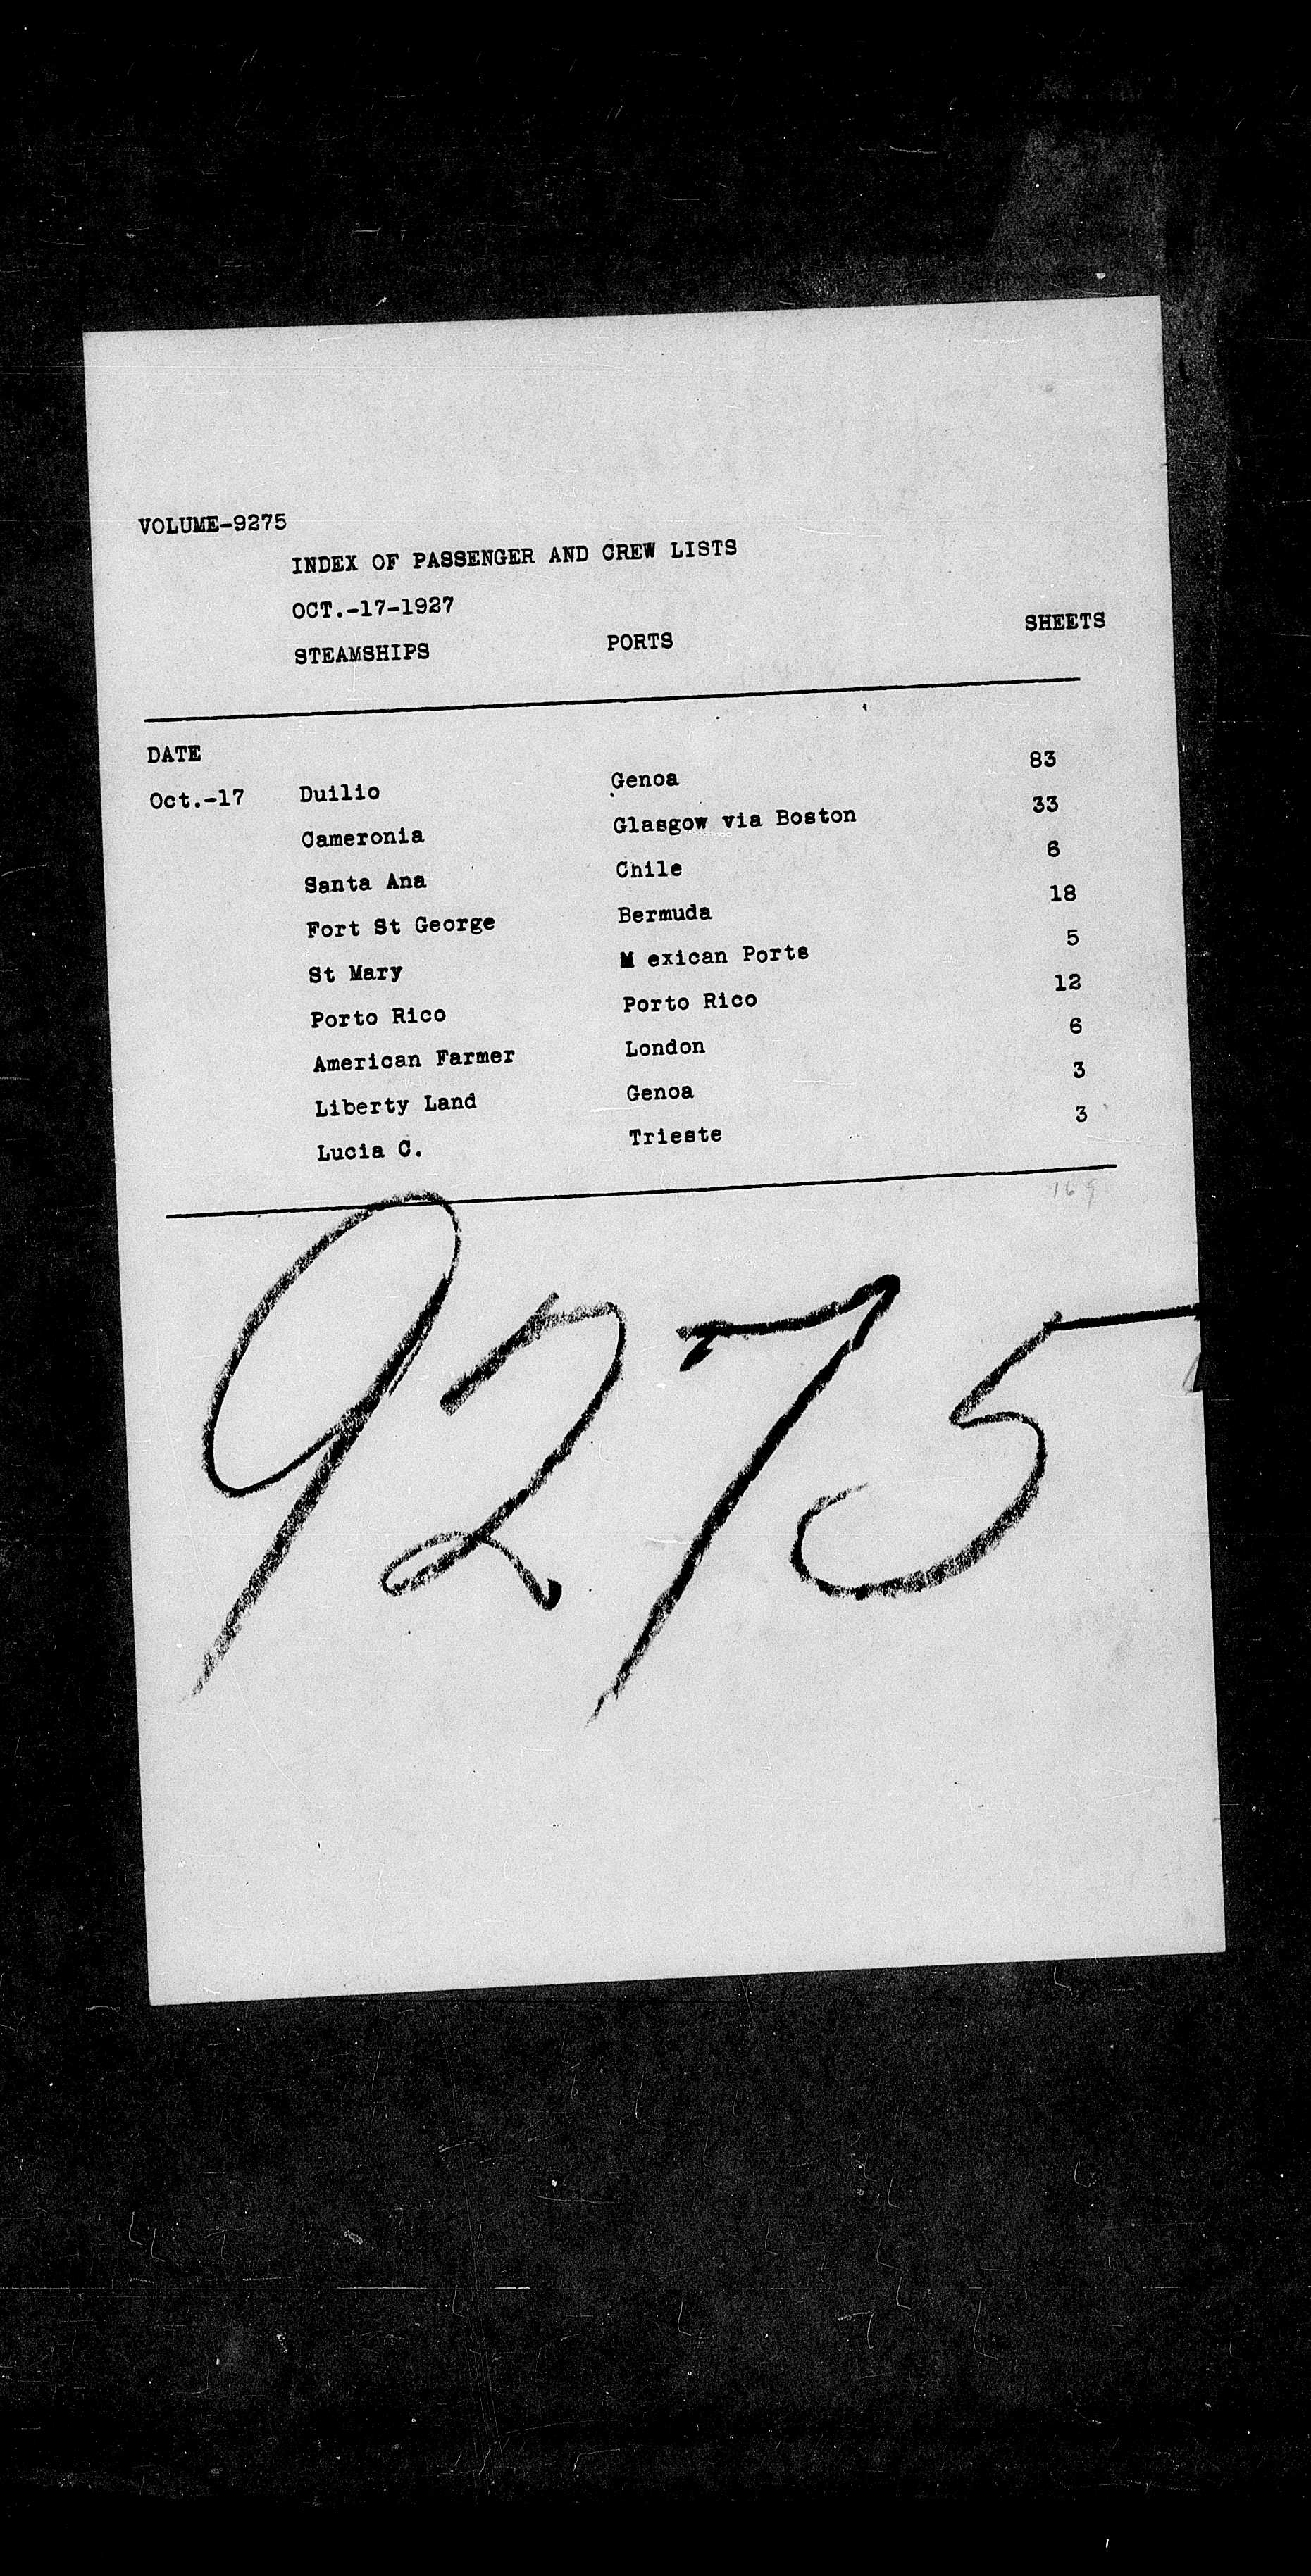 VOLUME-9275
INDEX OF PASSENGER AND CREW LISTS
OCT.-17-1927
STEAMSHIPS PORTS SHEETS
DATE
Oct.-17 Duilio Genoa 83
Cameronia Glasgow via Boston 33
Santa Ana Chile 6
Fort St George Bermuda 18
St Mary M exican Ports 5
Porto Rico Porto Rico 12
American Farmer London 6
Liberty Land Genoa 3
Lucia C. Trieste 3
169
9275